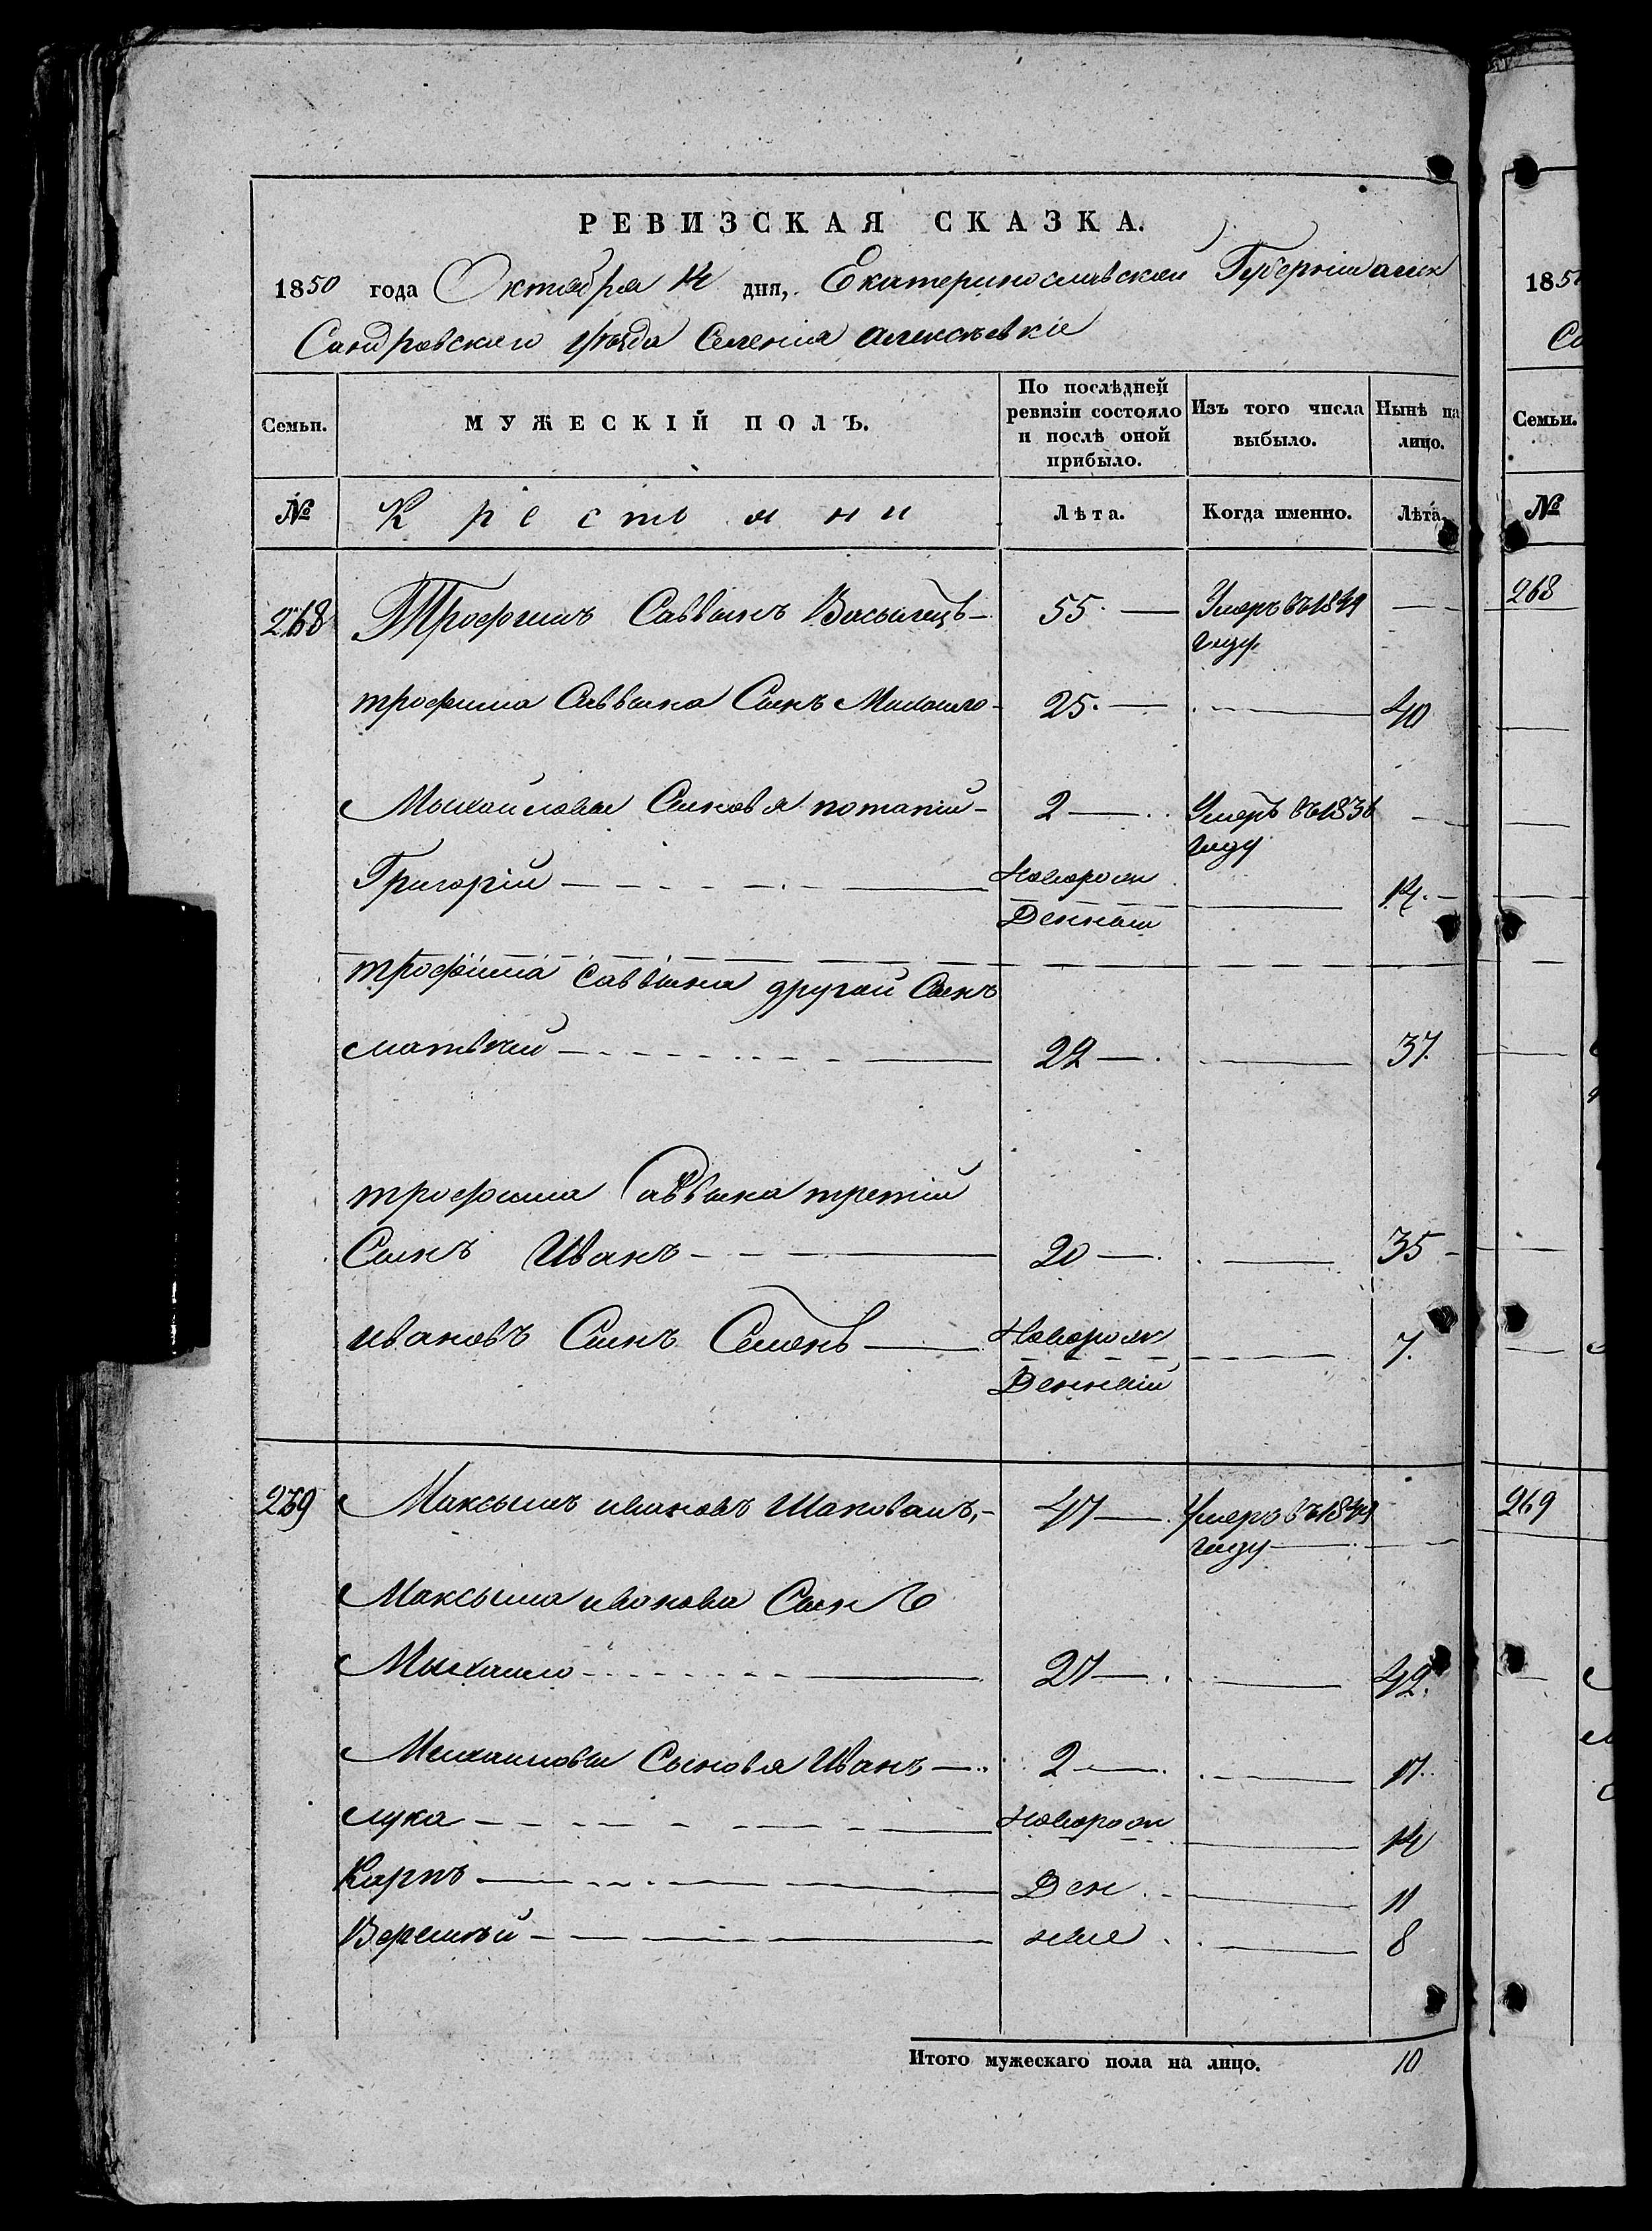 РЕВИЗСКАЯ СКАЗКА.
1850 года Октября 14 дня, Екатеринославской Губернiи алек
Сандровскаго уѣзда Селенiя алексѣевкiе
Семьи. МУЖЕСКІЙ ПОЛЪ. По послѣдней ревизіи состояло и послѣ оной прибыло. Изъ того числа выбыло. Нынѣ на лицо.
№ Крестьяни Лѣта. Когда именно. Лѣта.
268 Трофимъ Саввынъ Васылецъ 55 Умеръ въ 1849
году
трофима Саввына Сынъ Михайло 25 40
Мыхайловы Сыновя потапiй 2 Умеръ въ 1836
году
Григорiй Новорож 14
Деннай
трофима Саввына другой Сынъ
матвѣй 22 37
трофима Саввына третiй
Сынъ Иванъ 20 35
ивановъ Сынъ Семенъ Новорож 7
Деннай
269 Максымъ ивановъ Шаповалъ 47 Умеръ въ 1849
году
Максыма иванова Сынъ
Мыхайло 27 42
Михайловы Сыновя Иванъ 2 17
лука Новорож 14
Карпъ Ден 11
Веремѣй ные 8
Итого мужескаго пола на лицо. 10
185
Со
Семьи.
№
268
269